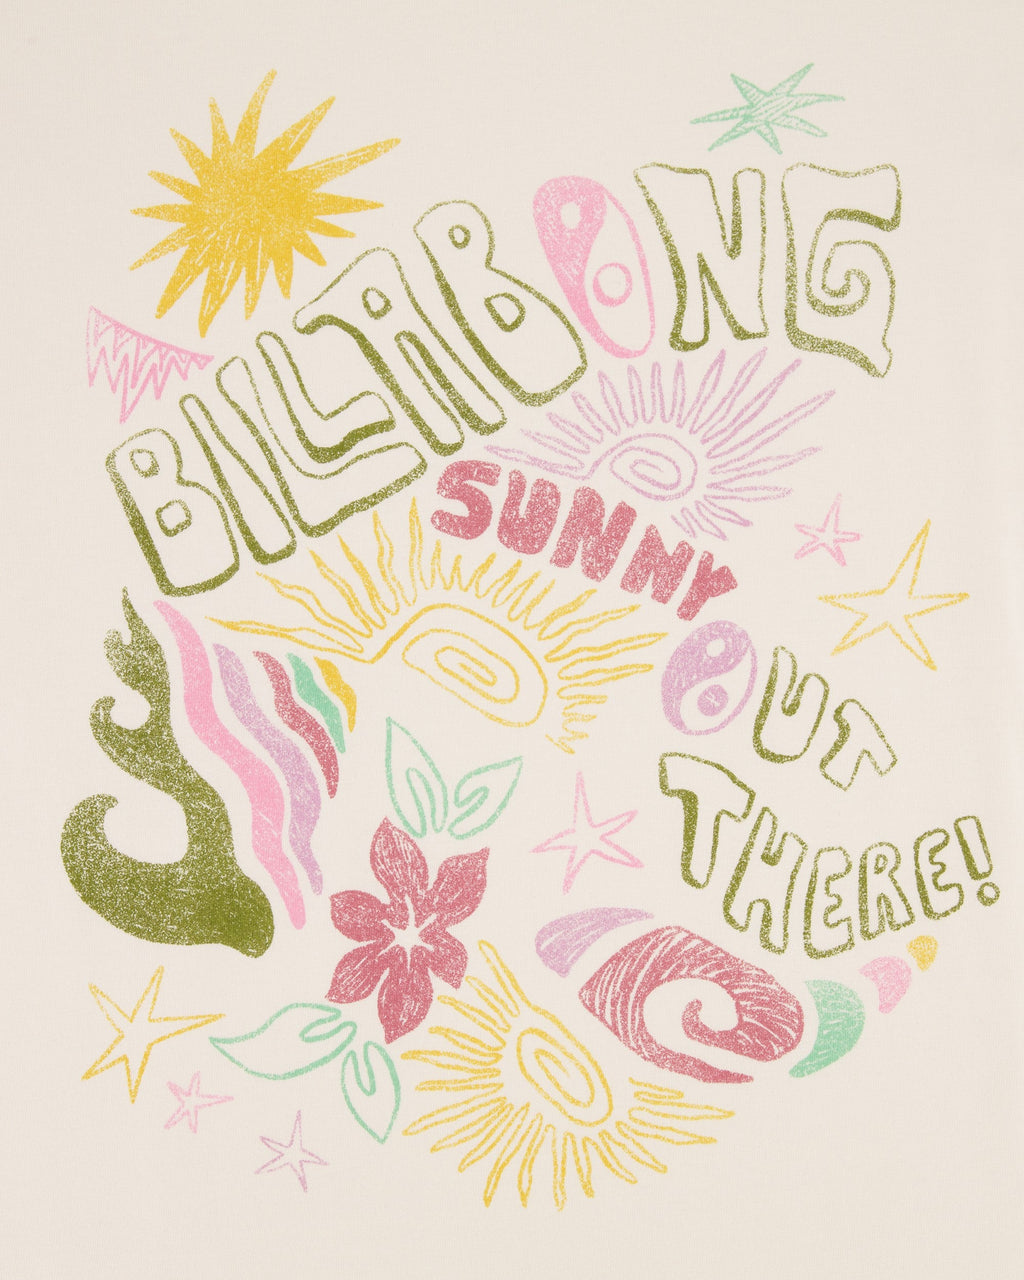 BILLABONG
SUNNY
OUT
THERE!